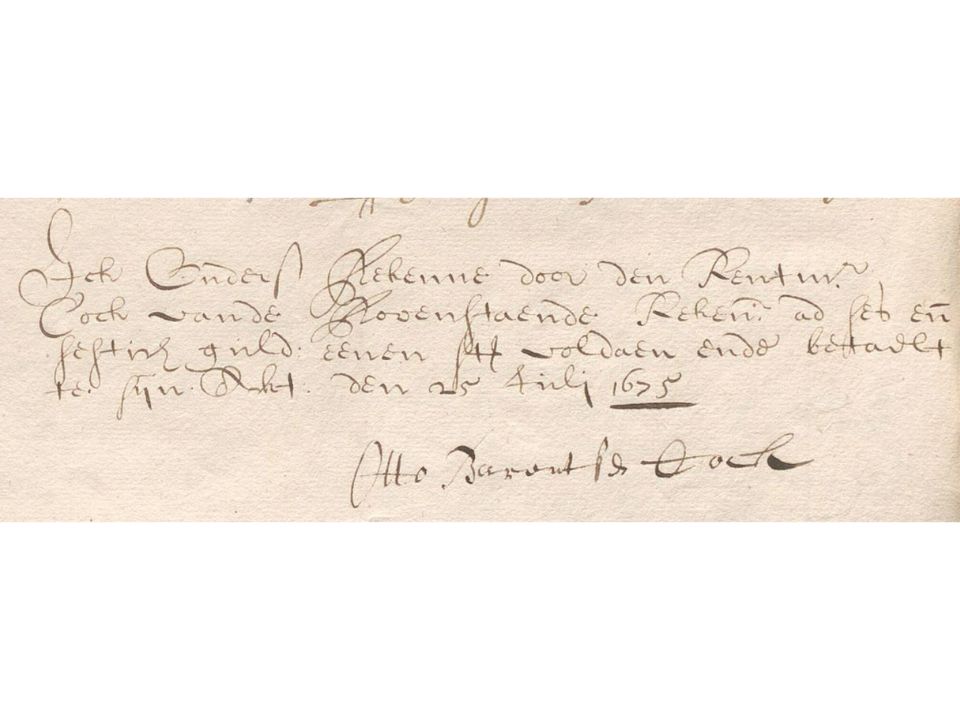 Ick Onders Bekenne door den Rentmr
Cock vande Bovenstaende Reken: ad ses en
sestich guld: eenen st voldaen ende betaelt
te sijn. Akt. den 25 Juli 1675
Otto Barentsz Cock